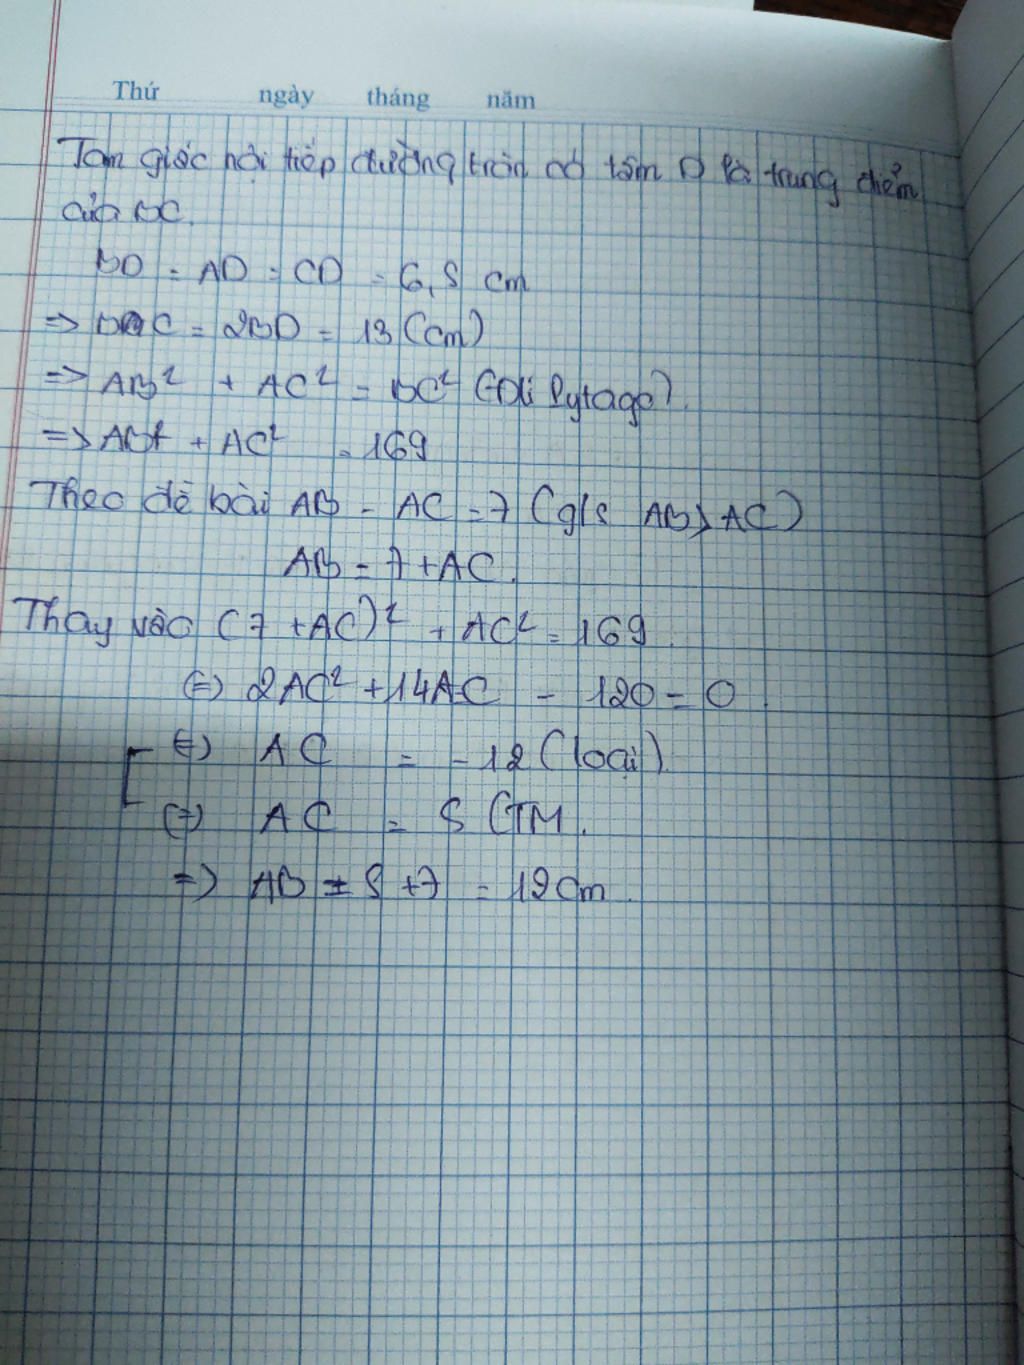 Thứ ngày tháng năm
Tam giác nội tiếp đường tròn có tâm D là trung điểm
của BC.
BD = AD = CD = 6,5 cm
=> BC = 2BD = 13 (cm)
=> AB² + AC² = BC² (ĐLí Pytago)
=> AB² + AC² = 169
Theo đề bài AB - AC = 7 (g/s AB > AC)
AB = 7 + AC.
Thay vào (7 + AC)² + AC² = 169.
(=) 2AC² + 14AC - 120 = 0.
[ (=) AC = -12 (loại).
(=) AC = 5 (TM.
=> AB = 5 + 7 = 12 cm.